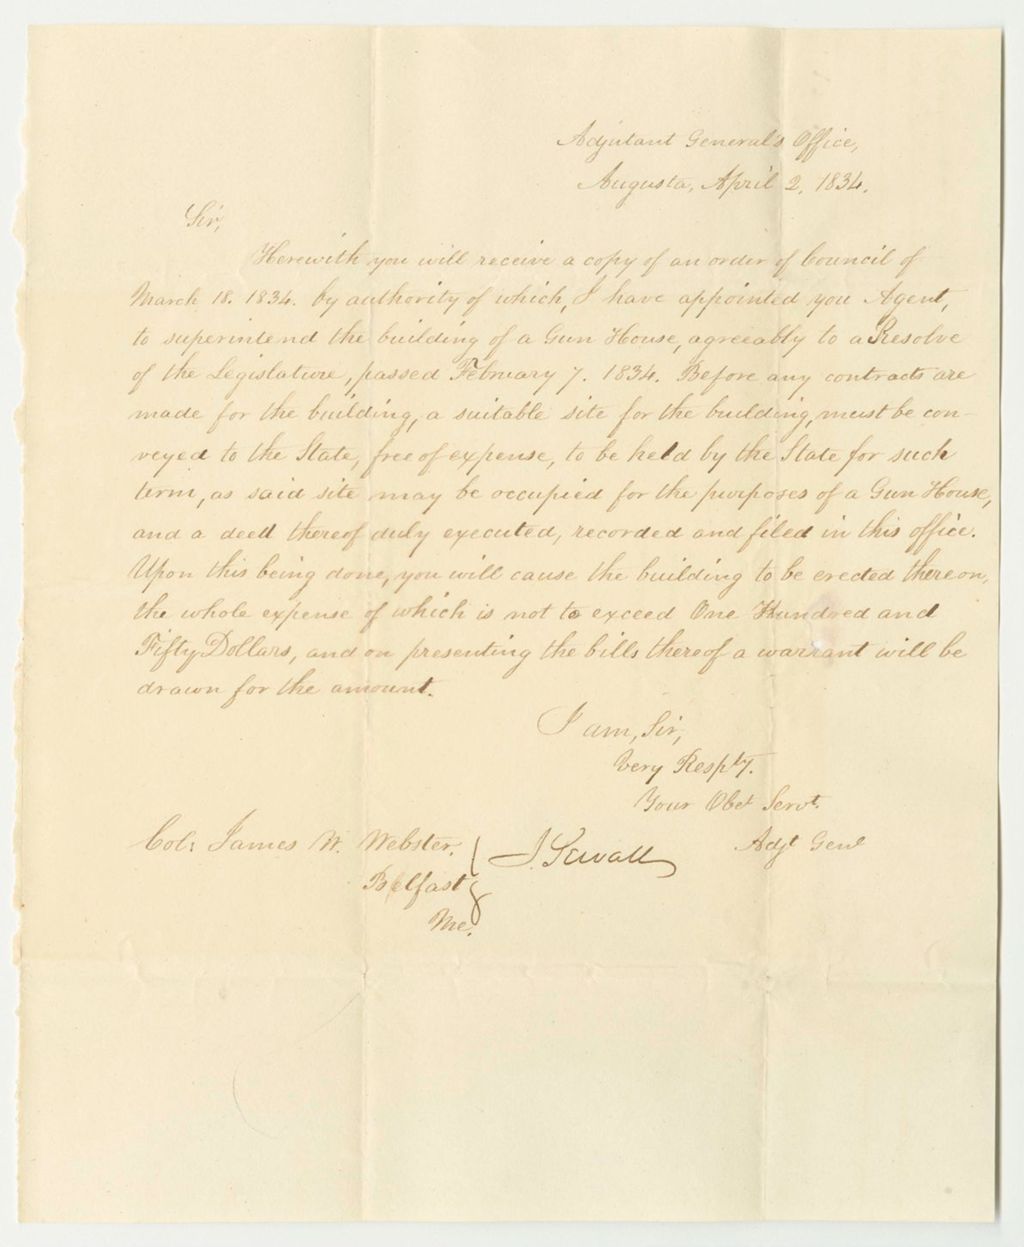 Adjutant General's Office,
Augusta, April 2, 1834.
Sir,
Herewith you will receive a copy of an order of Council of
March 18. 1834. by authority of which, I have appointed you Agent,
to superintend the building of a Gun House, agreeably to a Resolve
of the Legislature, passed February 7. 1834. Before any contracts are
made for the building, a suitable site for the building, must be con-
veyed to the State, free of expense, to be held by the State for such
term, as said site may be occupied for the purposes of a Gun House,
and a deed thereof duly executed, recorded and filed in this office.
Upon this being done, you will cause the building to be erected thereon,
the whole expense of which is not to exceed One Hundred and
Fifty Dollars, and on presenting the bills thereof a warrant will be
drawn for the amount.
I am, Sir,
Very Resply.
Your Obet Servt.
Col: James W. Webster,
Belfast
Me.
J. Sewall
Adjt Genl